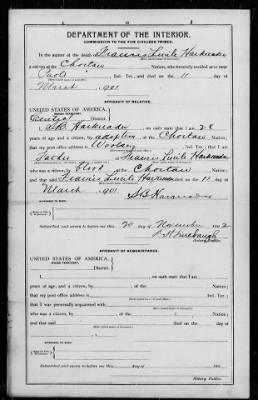 DEPARTMENT OF THE INTERIOR.
COMMISSION TO THE FIVE CIVILIZED TRIBES.
In the matter of the death of Francis Lucile Harknader
a citizen of the Choctaw Nation, who formerly resided at or near
, Ind. Ter., and died on the 11 day of
March, 1901
AFFIDAVIT OF RELATIVE.
UNITED STATES OF AMERICA,
INDIAN TERRITORY,
Central District.
I, S B Harknader, on oath state that I am 28
years of age and a citizen, by adoption of the Choctaw Nation;
that my post office address is , Ind. Ter.; that I am
Father of Francis Lucile Harknader
who was a citizen, by blood, of the Choctaw Nation;
and that said Francis Lucile Harknader died on the 11 day of
March, 1901
S B Harknader
WITNESSES TO MARK:
Subscribed and sworn to before me this 20 day of November 1902
Notary Public.
AFFIDAVIT OF ACQUAINTANCE.
UNITED STATES OF AMERICA,
INDIAN TERRITORY,
District.
I, , on oath state that I am
years of age, and a citizen, by of the Nation;
that my post office address is , Ind. Ter.;
that I was personally acquainted with
who was a citizen, by , of the Nation;
and that said died on the day of
WITNESSES TO MARK:
Subscribed and sworn to before me this day of
Notary Public.